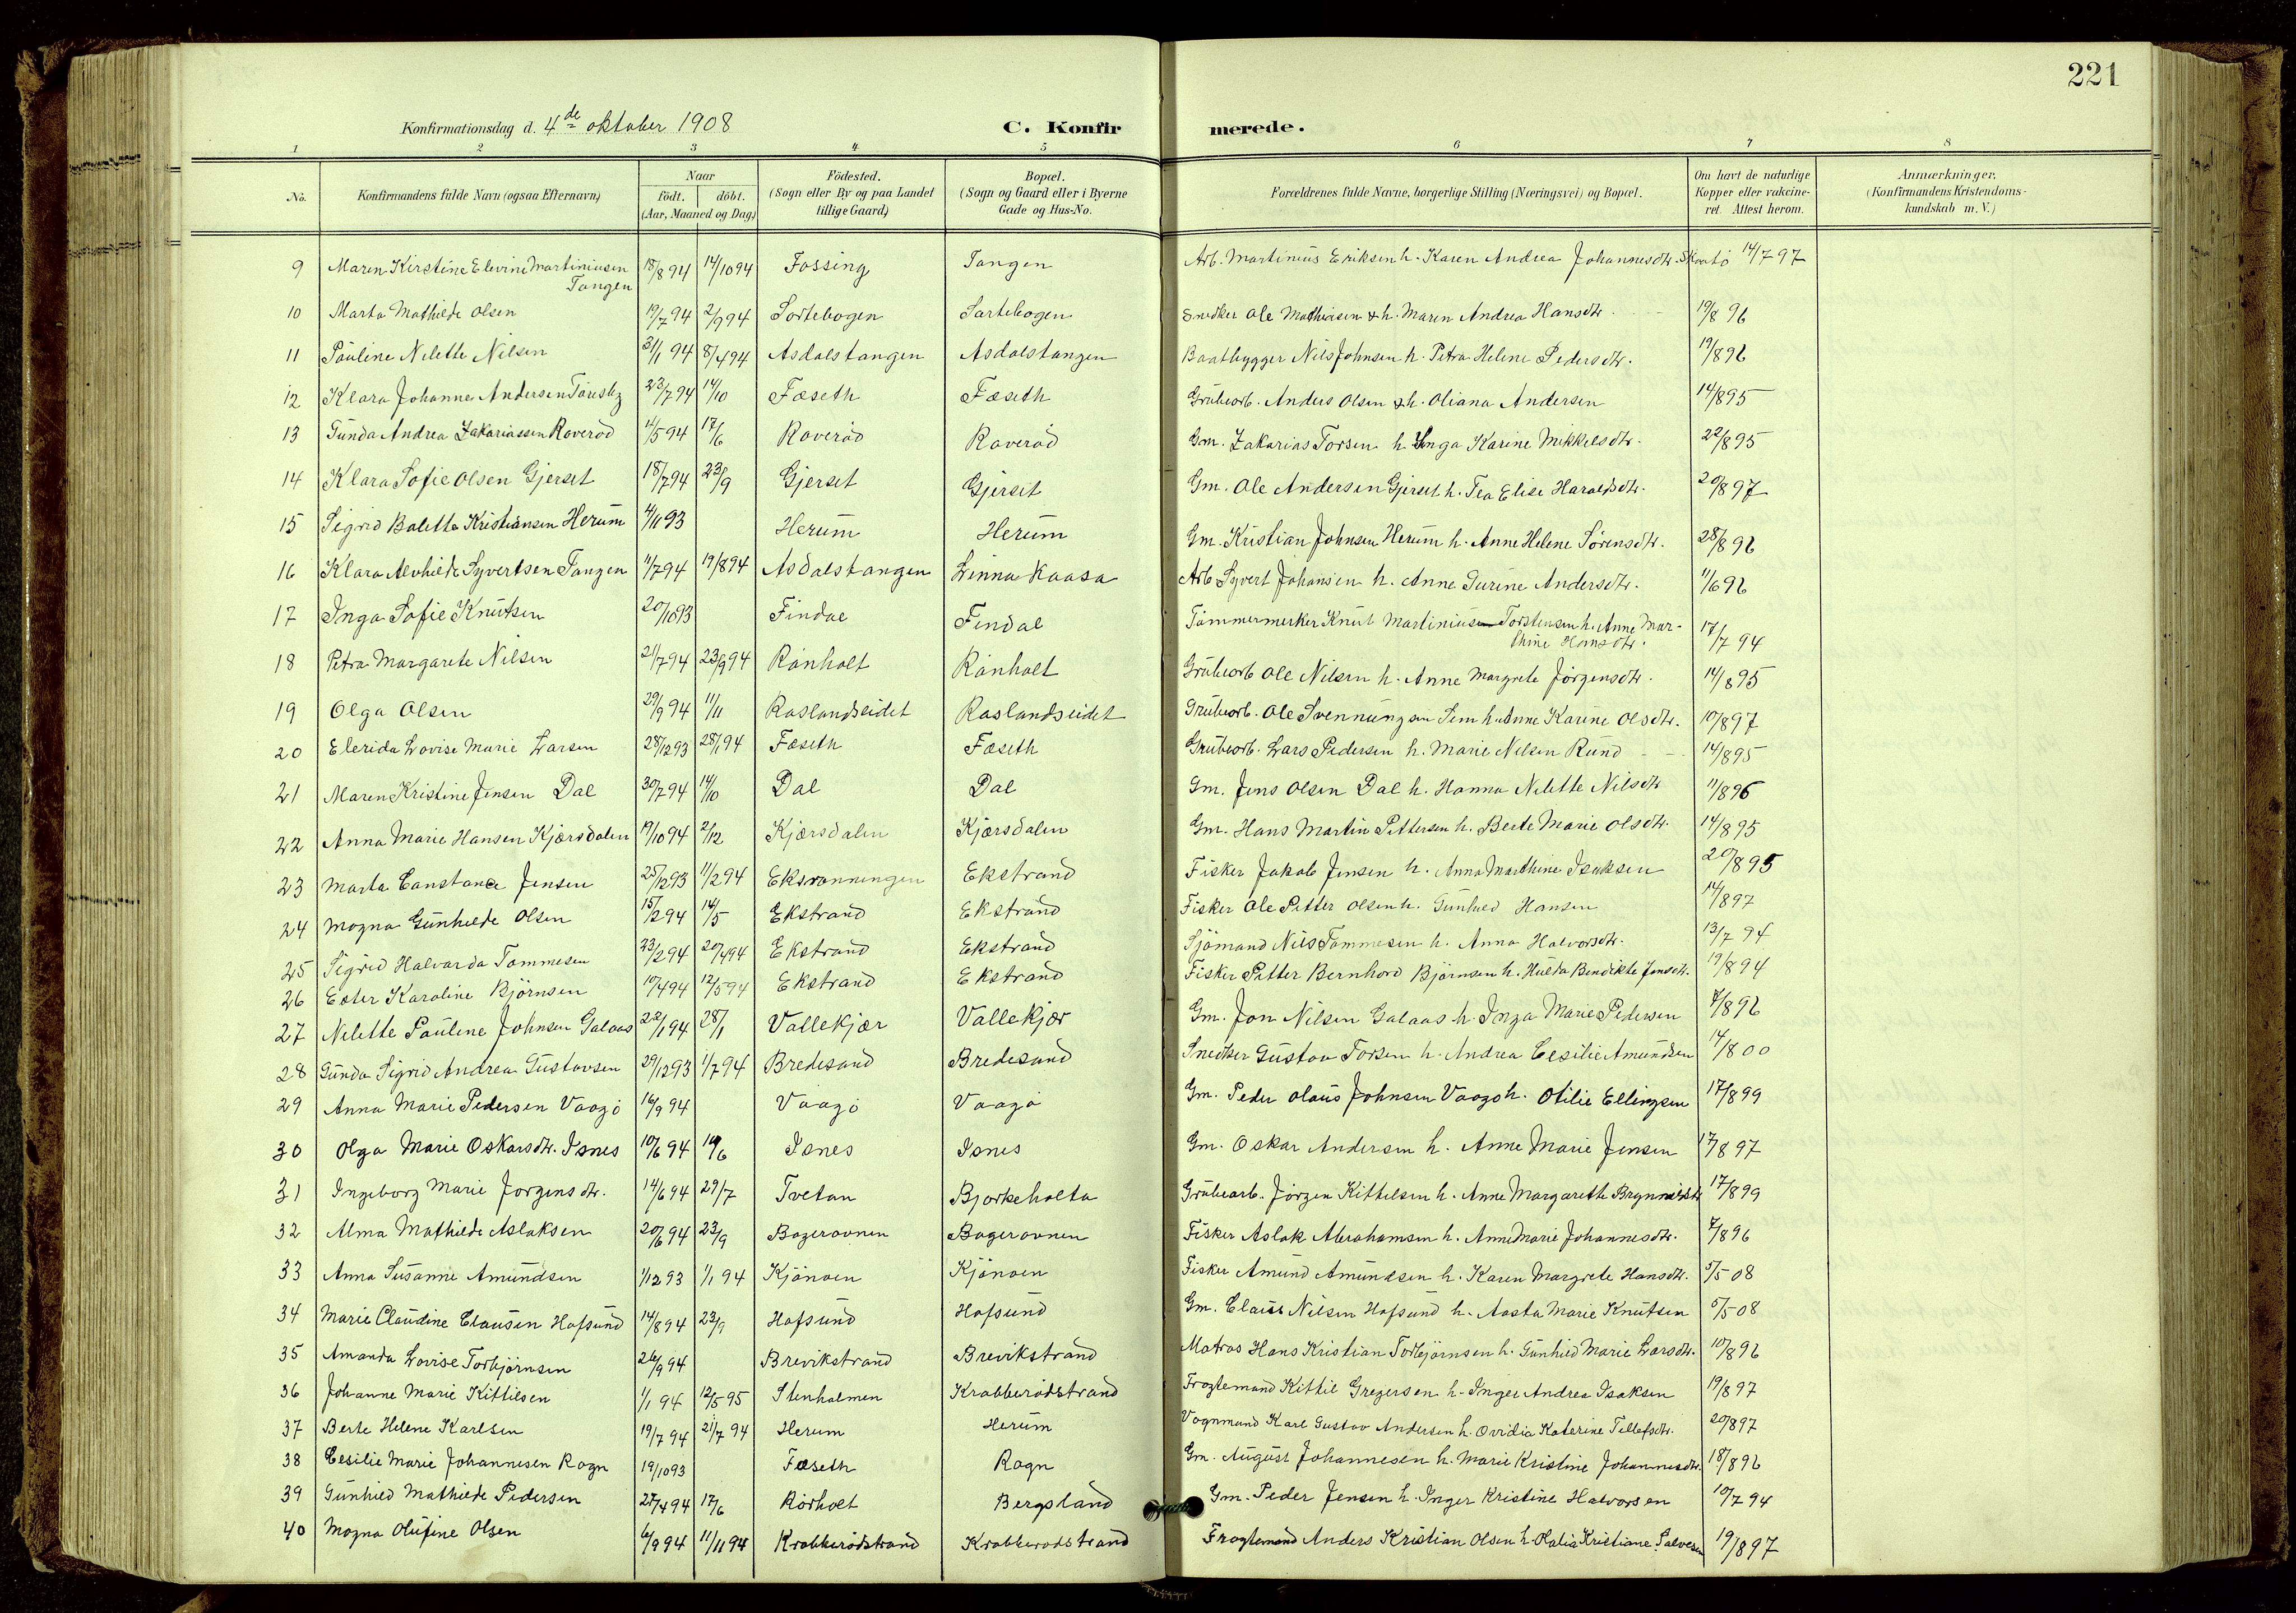 221
Konfirmationsdag d. 4de oktober 1908 C. Konfirmerede.
1 2 3 4 5 6 7 8
No. Konfirmandens fulde Navn (ogsaa Efternavn) Naar født. døbt. (Aar, Maaned og Dag) Fødested. (Sogn eller By og paa Landet tillige Gaard) Bopæl. (Sogn og Gaard eller i Byerne Gade og Hus-No. Forældrenes fulde Navne, borgerlige Stilling (Næringsvei) og Bopæl. Om havt de naturlige Kopper eller vakcineret. Attest herom. Anmærkninger. (Konfirmandens Kristendomskundskab m. V.)
9 Maren Kirstine Elevine Martiniusen Tangen 18/8 94 14/10 94 Fossing Tangen Arb. Martinius Eriksen h. Karen Andrea Johannesdtr. Skaatö 14/7 97
10 Marta Mathilde Olsen 19/7 94 2/9 94 Sortebogen Sartebogen Snedker Ole Mathiasen & h. Maren Andrea Hansdtr. 19/8 96
11 Pauline Nilette Nilsen 31/1 94 8/4 94 Asdalstangen Asdalstangen Baatbygger Nils Johnsen h. Petra Helene Pedersdtr. 19/8 96
12 Klara Johanne Andersen 23/7 94 14/10 Fæseth Fæseth Grubearb. Anders Olsen & h. Oliana Andersen 14/8 95
13 Gunda Andrea Zakariassen Roveröd 11/5 94 17/6 Roveröd Roveröd Gm. Zakarias Torsen h. Inga Karine Mikkelsdtr. 22/8 95
14 Klara Sofie Olsen Gjerset 18/7 94 23/9 Gjerset Gjerset Gm. Ole Andersen Gjerset h. Tea Elise Haraldsdtr. 20/8 97
15 Sigrid Balette Kristiansen Herum 4/11 93 Herum Herum Gm. Kristian Johnsen Herum h. Anne Helene Sörensdtr. 28/8 96
16 Klara Alvhilde Syvertsen Tangen 11/7 94 19/8 94 Asdalstangen Linna Kaasa Arb Syvert Johansen h. Anne Gurine Andersdtr. 11/6 96
17 Inga Sofie Knutsen 20/10 93 Findal Findal Tömmermerker Knut Martinius Torstensen h. Anne Marthine Hansdtr. 17/7 94
18 Petra Margarete Nilsen 21/7 94 23/9 94 Rönholt Rönholt Grubearb Ole Nilsen h. Anne Margrete Jörgensdtr. 14/8 95
19 Olga Olsen 29/9 94 11/11 Roslandseidet Roslandseidet Grubearb. Ole Svennungsen Sem h. Anne Karine Olsdtr. 10/8 97
20 Elerida Lovise Marie Larsen 28/12 93 28/1 94 Fæseth Fæseth Grubearb. Lars Pedersen h. Marie Nilsen Rund 14/8 95
21 Maren Kristine Jensen Dal 30/7 94 14/10 Dal Dal Gm. Jens Olsen Dal h. Hanna Nilette Nilsdtr 11/8 96
22 Anna Marie Hansen Kjærsdalen 19/10 94 2/12 Kjærsdalen Kjærsdalen Gm. Hans Martin Pettersen h. Berte Marie Olsdtr. 14/8 95
23 Marta Constance Jensen 25/12 93 11/2 94 Eksrønningen Ekstrand Fisker Jakob Jensen h. Anna Marthine Isaksen 20/8 95
24 Magna Gunhilde Olsen 15/2 94 14/5 Ekstrand Ekstrand Fisker Ole Petter Olsen h. Gunhild Hansen 14/8 97
25 Sigrid Halvarda Tommesen 23/2 94 20/4 94 Ekstrand Ekstrand Sjömand Nils Tommesen h. Anna Halvorsdtr. 13/7 94
26 Ester Karoline Björnsen 10/4 94 12/5 94 Ekstrand Ekstrand Fisker Petter Bernhard Björnsen h. Hulda Bendikte Jensdtr. 19/8 94
27 Nilette Pauline Johnsen Galaas 22/1 94 28/1 Vallekjær Vallekjær Gm. Jon Nilsen Galaas h. Inga Marie Pedersen 7/8 96
28 Gunda Sigrid Andrea Gustavsen 29/12 93 1/7 94 Bredesand Bredesand Snedker Gustav Torsen h. Andrea Cesilie Amundsen 14/8 00
29 Anna Marie Pedersen Vaagö 16/9 94 Vaagö Vaagö Gm. Peder Olaus Johnsen Vaagö h. Otilie Ellingsen 17/8 99
30 Olga Marie Oskarsdtr. Isnes 10/6 94 Isnes Isnes Gm. Oskar Andersen h. Anne Marie Jensen 17/8 97
31 Ingeborg Marie Jörgensdtr. 14/6 94 29/7 Tvetan Bjorkeholta Grubearb. Jörgen Kittelsen h. Anne Margareth 17/8 99
32 Alma Mathilde Aslaksen 20/6 94 23/9 Bagerovnen Bagerovnen Fisker Aslak Abrahamsen h. Anne Marie Johannesdtr. 7/8 96
33 Anna Susanne Amundsen 1/12 93 1/1 94 Kjönöen Kjönöen Fisker Amund Amundsen h. Karen Margrete Hansdtr. 5/5 08
34 Marie Claudine Clausen Hafsund 14/8 94 23/9 Hafsund Hafsund Gm. Claus Nilsen Hafsund h. Aasta Marie Knutsen 5/5 08
35 Amanda Lovise Torbjörnsen 26/9 94 Brevikstrand Brevikstrand Matros Hans Kristian Torbjörnsen h. Gunhild Marie Larsdtr. 10/8 96
36 Johanne Marie Kittilsen 1/1 94 12/5 95 Stenholmen Krabberödstrand Fragtemand Kittil Gregersen h. Inger Andrea Isaksen 19/8 97
37 Berte Helene Karlsen 19/7 94 21/7 94 Herum Herum Vognmand Karl Gustav Andersen h. Ovidia Katerine Tellefsdtr. 20/8 97
38 Cesilie Marie Johannesen Rogn 19/10 93 Fæseth Rogn Gm. August Johannesen h. Marie Kristine Johannesdtr. 18/8 96
39 Gunhild Mathilde Pedersen 27/4 94 17/6 Rörholt Bergsland Gm. Peder Jensen h. Inger Kristine Halvorsen 10/7 94
40 Magna Olufine Olsen 6/9 94 11/11 94 Krabberödstrand Krabberödstrand Fragtemand Anders Kristian Olsen h. Kristiane Salvesen 19/8 97